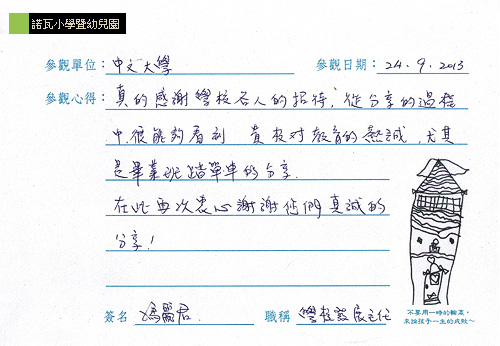 諾瓦小學暨幼兒園
參觀單位：中文大學 參觀日期：24.9.2013
參觀心得：真的感謝學校各人的招待，從分享的過程
中，很能夠看到 貴校对教育的熱誠，尤其
是畢業班踏單車的分享。
在此再次衷心謝謝您們真誠的
分享！
簽名 馮麗君 職稱 學校發展主任
不要用一時的輸贏，
來論孩子一生的成敗～